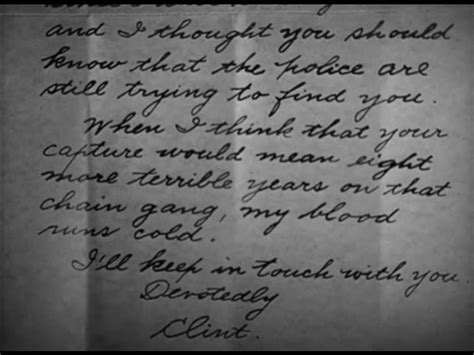 and I thought you should
know that the police are
still trying to find you.
When I think that your
capture would mean eight
more terrible years on that
chain gang, my blood
runs cold.
I'll keep in touch with you.
Devotedly
Clint.